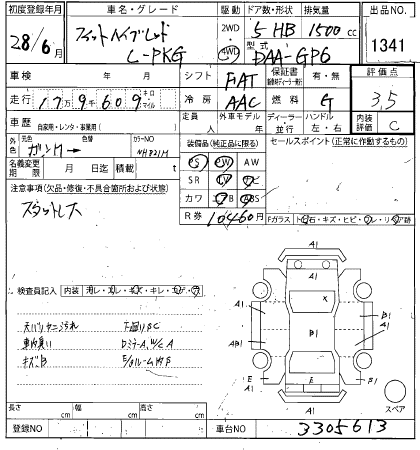 初度登録年月 車名・グレード 駆動 ドア数・形状 排気量 出品NO.
28/6月 フィットハイブリッド L-PKG 2WD 4WD 5 HB 1500cc 1341
型式 DAA-GP6
車検 年 月 シフト FAT 保証書 有・無 評価点 3.5
走行 17万9千609 キロ マイル 冷房 AAC 燃料 G 内装評価 C
車歴 自家用・レンタ・事業用( ) 定員 人 外車モデル 年 ディーラー 並行 ハンドル 左・右
外色 元色 色替 カラーNO 装備品(純正品に限る) セールスポイント(正常に作動するもの)
NH821M
名義変更期限 月 日迄 積載( )t PS PW AW
注意事項(欠品・修復・不具合箇所および状態) SR
スタットレス カワ ABS
R券 10460円
Fガラス
検査員記入 内装
天バリ ヤニ汚れ 下廻りSC
車内臭い DミラーA,W/C A
キズB
A1
A1 A1
B1 B1
AB1 A1
E E
A1
スペア
長さ cm 幅 cm 高さ cm
登録NO 車台NO 3305613